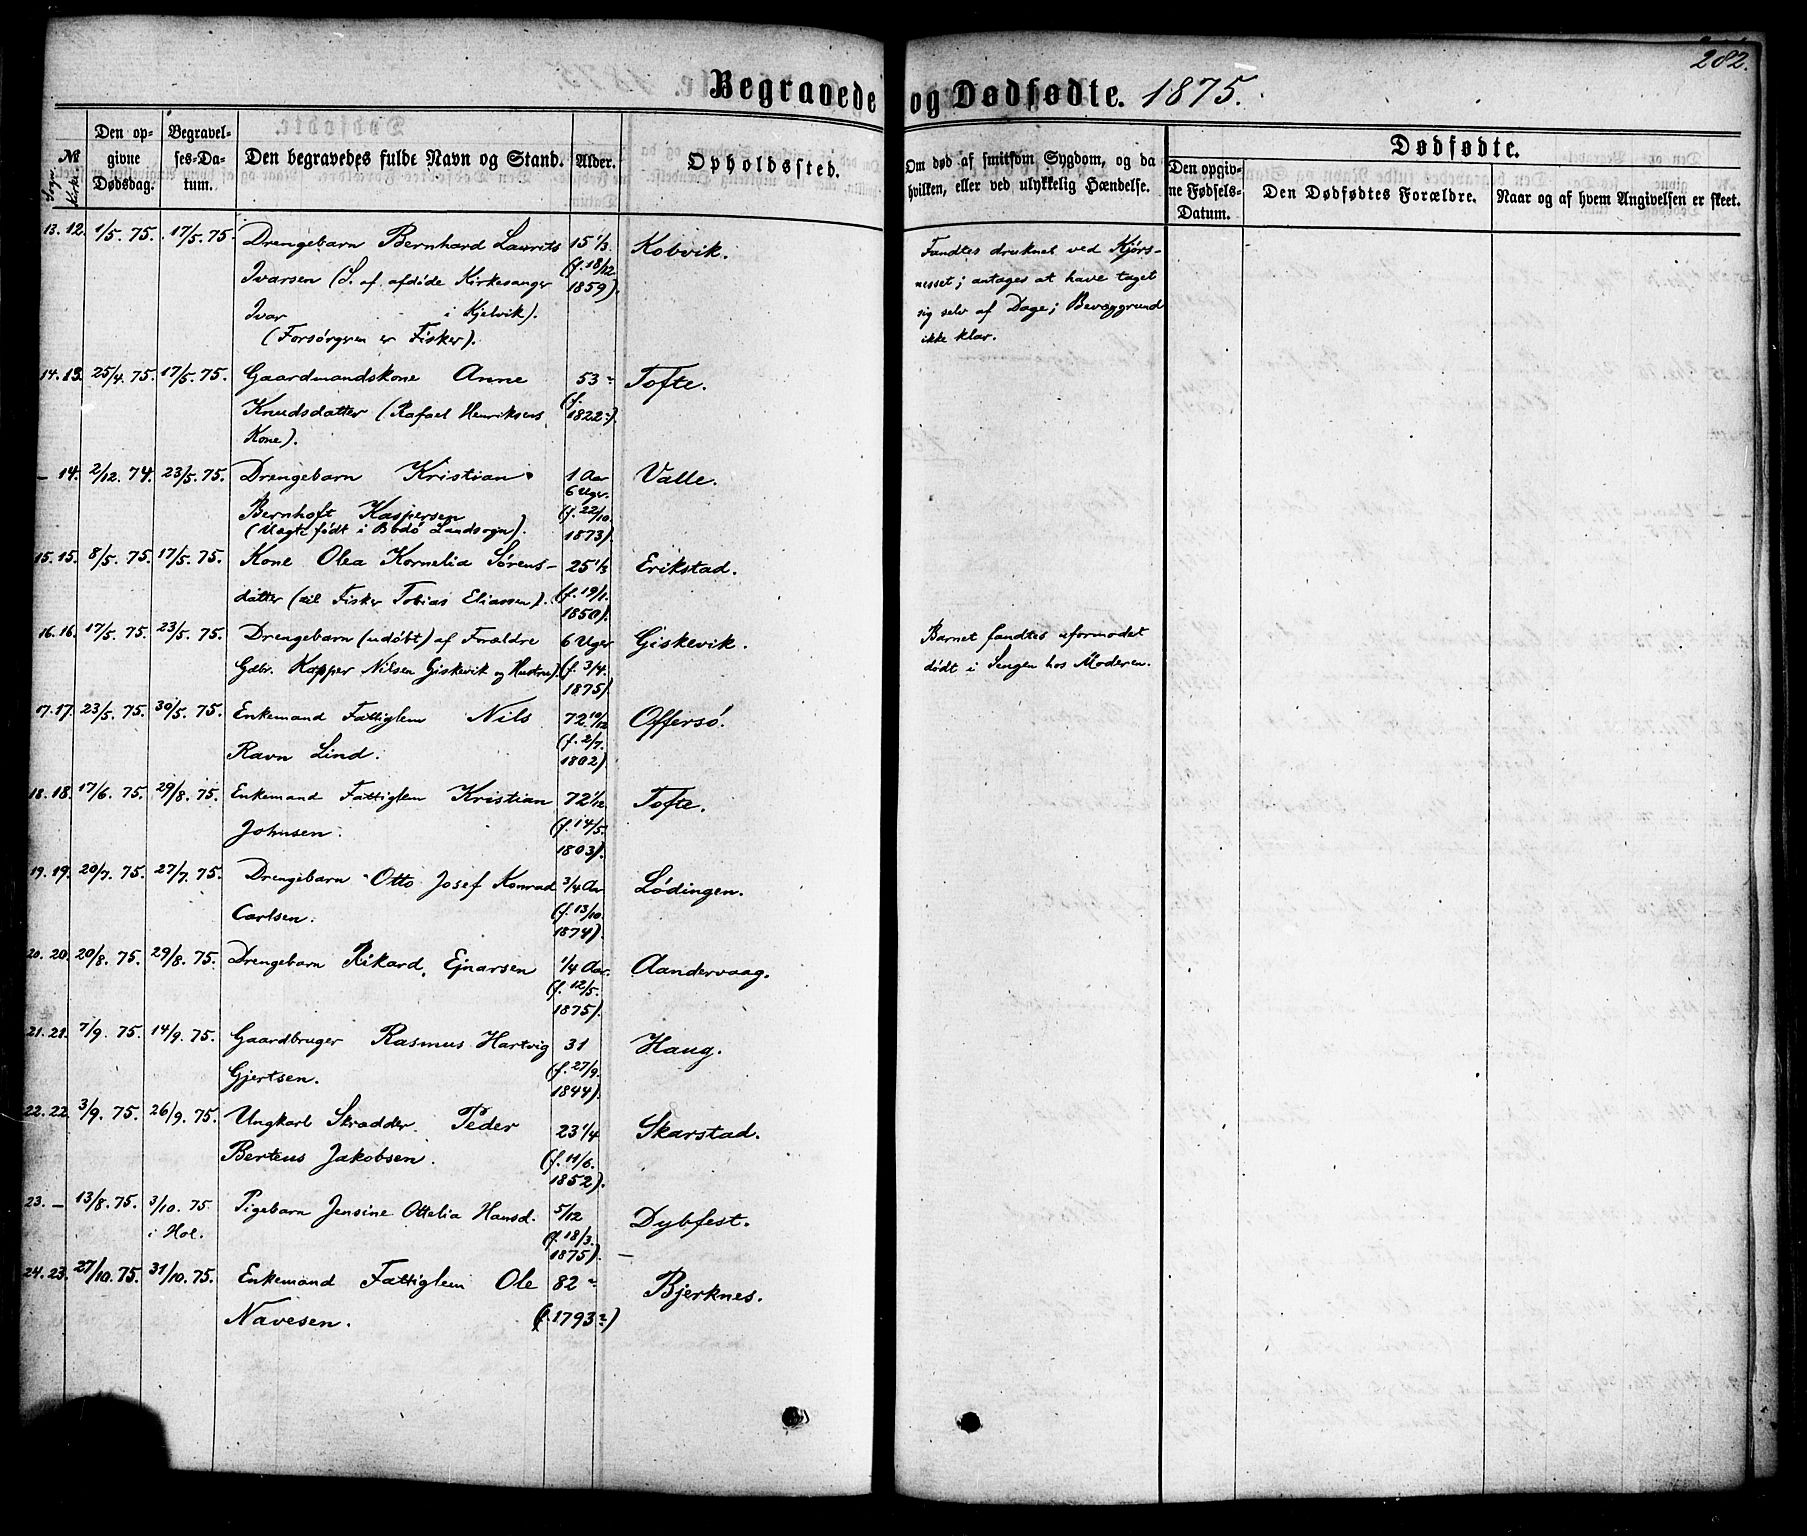 282.
Begravede og Dødfødte. 1875.
№ Sogn. Kirke.
Den opgivne Dødsdag.
Begravelses-Datum.
Den begravedes fulde Navn og Stand.
Alder.
Opholdssted.
Om død af smitsom Sygdom, og da hvilken, eller ved ulykkelig Hændelse.
Dødfødte.
Den opgivne Fødsels-Datum.
Den Dødfødtes Forældre.
Naar og af hvem Angivelsen er skeet.
13. 12. 1/5. 75. 17/5. 75. Drengebarn Bernhard Laurits 15 1/3. Kobvik. Fandtes druknet ved Kjørs-
Ivarsen (S. af afdøde Kirkesanger (f. 18/12 nesset; antages at have taget
Ivar i Kjelvik). 1859). sig selv af Dage; Bevæggrund
(Forsørgeren er Fisker). ikke klar.
14. 13. 25/4. 75. 17/5. 75. Gaardmandskone Anne 53 Tofte.
Knudsdatter (Rafael Henriksens (f. 1822?).
Kone).
– 14. 2/12. 74. 23/5. 75. Drengebarn Kristian 1 Aar Valle.
Bernhoft Kaspersen 6 Uger. (f. 22/10.
(Uægte født i Bodø Landsogn). 1873).
15. 15. 8/5. 75. 17/5. 75. Kone Olea Kornelia Sørens- 25 1/3 Erikstad.
datter (til Fisker Tobias Eliassen). (f. 19/1. 1850).
16. 16. 17/5. 75. 23/5. 75. Drengebarn (udøbt) af Forældre 6 Uger Giskevik. Barnet fandtes uformodet
Gdbr. Kasper Nilsen Giskevik og Hustru). (f. 3/4. 1875). dødt i Sengen hos Moderen.
17. 17. 23/5. 75. 30/5. 75. Enkemand Fattiglem Nils 72 10/12 Offersø.
Ravn Lind. (f. 2/7. 1802).
18. 18. 17/6. 75. 29/8. 75. Enkemand Fattiglem Kristian 72 1/12 Tofte.
Johnsen. (f. 14/5. 1803).
19. 19. 20/7. 75. 27/7. 75. Drengebarn Otto Josef Konrad 3/4 Aar Lødingen.
Carlsen. (f. 13/10. 1874).
20. 20. 20/8. 75. 29/8. 75. Drengebarn Rikard Ejnarsen 1/4 Aar. Aandervaag.
(f. 12/5. 1875).
21. 21. 7/9. 75. 14/9. 75. Gaardbruger Rasmus Hartvig 31 Haug.
Gjertsen. (f. 27/9. 1844).
22. 22. 3/9. 75. 26/9. 75. Ungkarl Skradder Peder 23 1/4 Skarstad.
Berteus Jakobsen. (f. 11/6. 1852).
23. – 13/8. 75. 3/10. 75. Pigebarn Jensine Ottelia Hansd. 5/12 Dybfest.
i Hol. (f. 18/3. 1875).
24. 23. 27/10. 75. 31/10. 75. Enkemand Fattiglem Ole 82 Bjerknes.
Navesen. (f. 1793?)